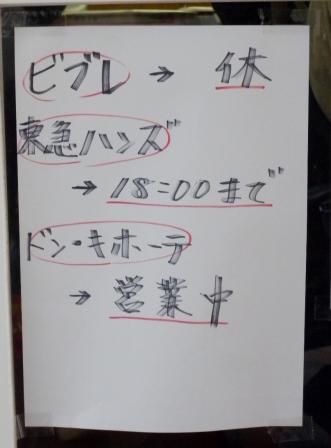 ビブレ → 休
東急ハンズ
→ 18:00まで
ドン・キホーテ
→ 営業中